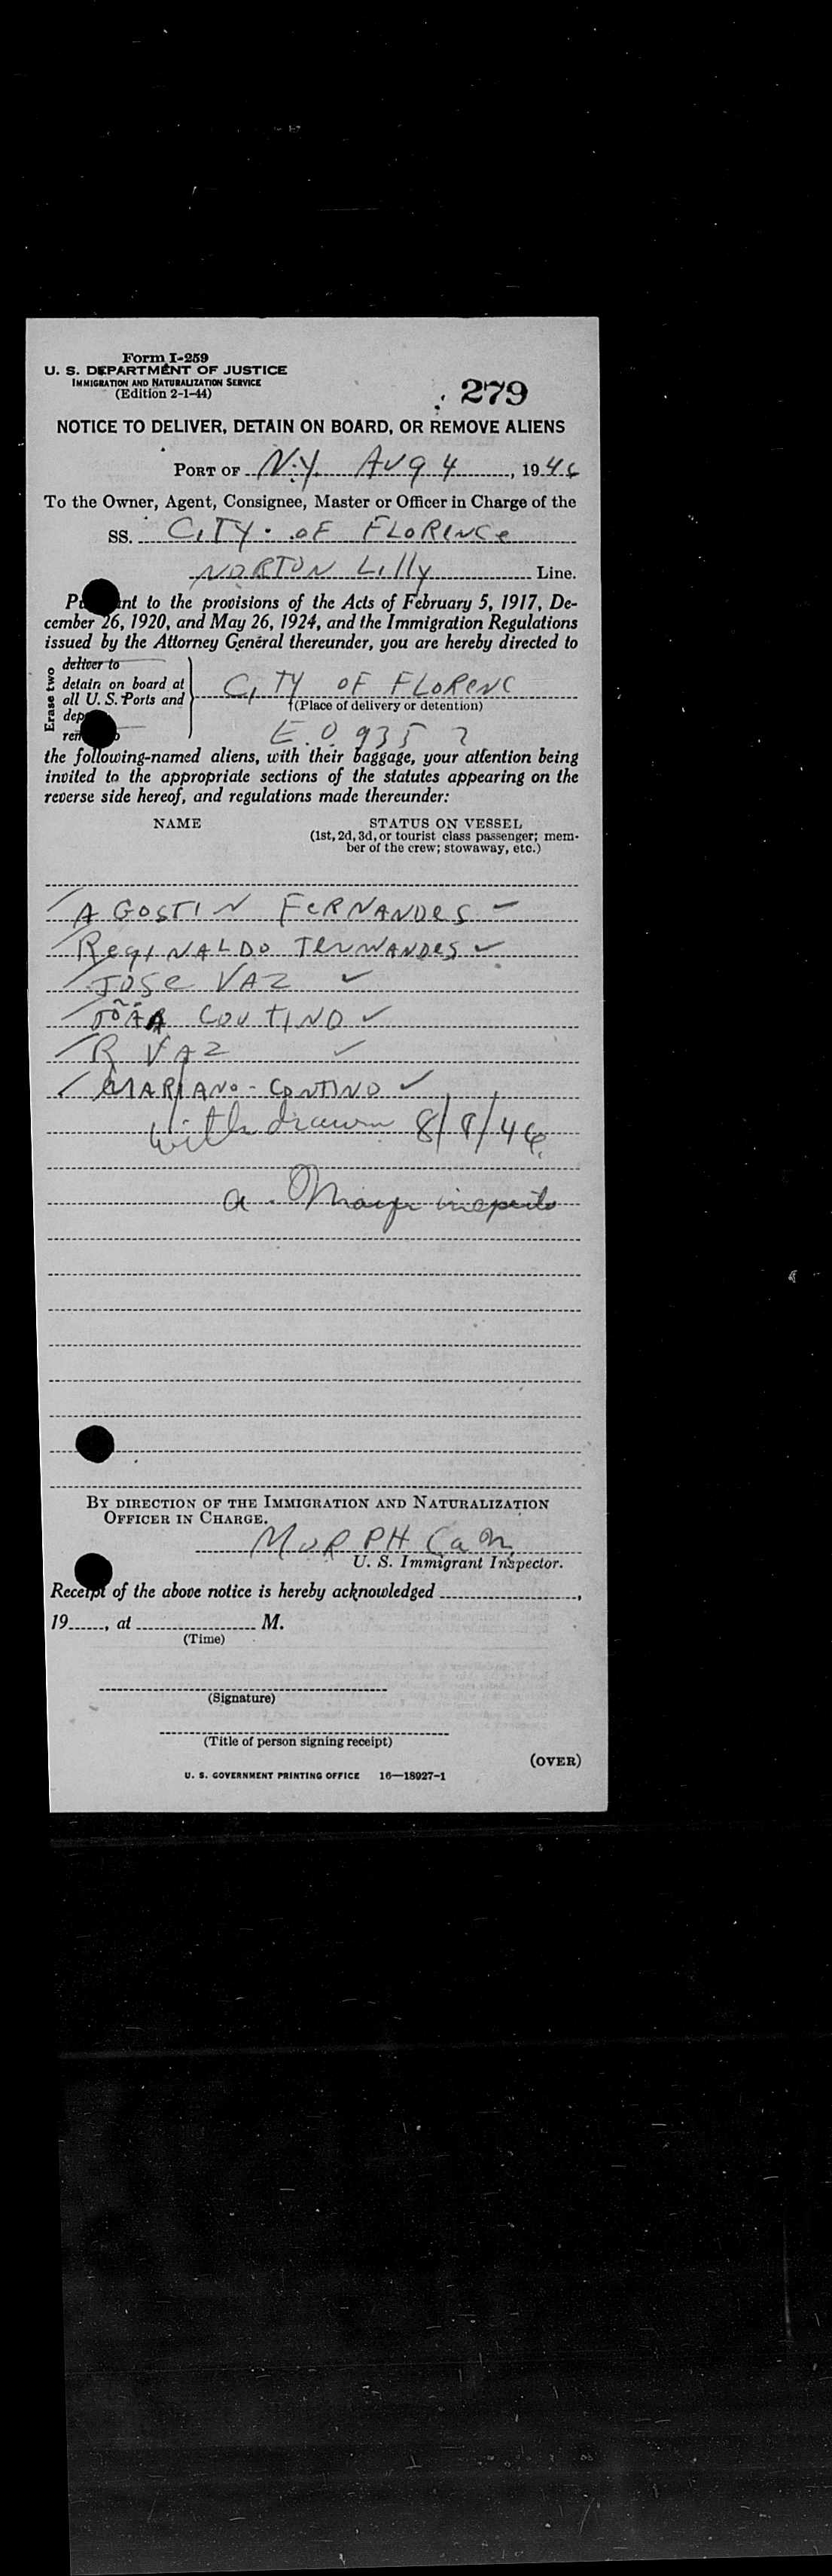 Form I-259
U. S. DEPARTMENT OF JUSTICE
IMMIGRATION AND NATURALIZATION SERVICE
(Edition 2-1-44)
279
NOTICE TO DELIVER, DETAIN ON BOARD, OR REMOVE ALIENS
PORT OF N.Y. AUG 4, 1946
To the Owner, Agent, Consignee, Master or Officer in Charge of the
SS. CITY OF FLORENCE
NORTON Lilly Line.
nt to the provisions of the Acts of February 5, 1917, De-
cember 26, 1920, and May 26, 1924, and the Immigration Regulations
issued by the Attorney General thereunder, you are hereby directed to
Erase two
deliver to
detain on board at
all U. S. Ports and
dep
rem
CITY OF FLORENC
(Place of delivery or detention)
E.O. 935 2
the following-named aliens, with their baggage, your attention being
invited to the appropriate sections of the statutes appearing on the
reverse side hereof, and regulations made thereunder:
NAME
STATUS ON VESSEL
(1st, 2d, 3d, or tourist class passenger; mem-
ber of the crew; stowaway, etc.)
AGOSTIN FERNANDES
REGINALDO
JOSE VAZ ✓
COUTINO ✓
R VAZ ✓
MARIANO - CONTINO ✓
withdrawn 8/8/46
a.
BY DIRECTION OF THE IMMIGRATION AND NATURALIZATION
OFFICER IN CHARGE.
U. S. Immigrant Inspector.
Receipt of the above notice is hereby acknowledged ,
19 , at M.
(Time)
(Signature)
(Title of person signing receipt)
(OVER)
U. S. GOVERNMENT PRINTING OFFICE 16—18927-1